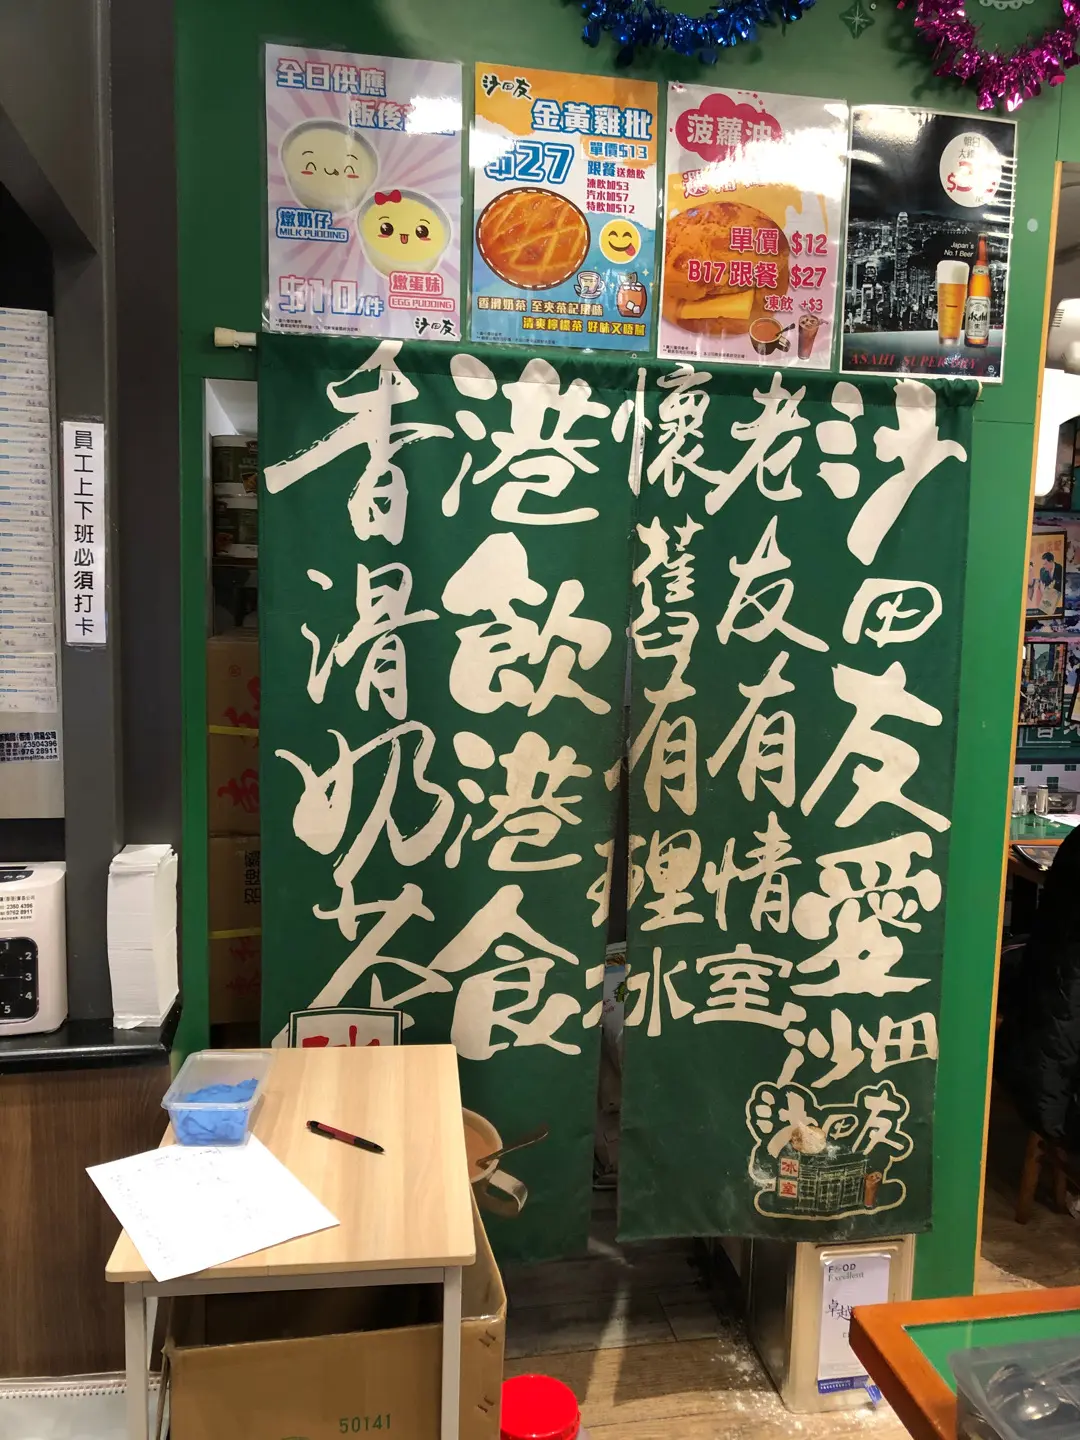 全日供應
飯後
燉奶仔
MILK PUDDING
燉蛋妹
EGG PUDDING
$10/件
沙田友
沙田友
金黃雞批
$27
單價$13
跟餐送熱飲
凍飲加$3
汽水加$7
特飲加$12
香滑奶茶 至夾茶記風味
清爽檸檬茶 好味又唔膩
菠蘿油
單價 $12
B17 跟餐 $27
凍飲 +$3
Japan's
No.1 Beer
Asahi
ASAHI SUPER DRY
員工上下班必須打卡
沙田友愛沙田
老友有情室
懷舊有理冰
港飲港食
香滑奶茶
冰
沙田友
冰室
23504396
976 28911
2350 4396
9762 8911
2
3
4
5
FOOD
Excellent
卓越
50141